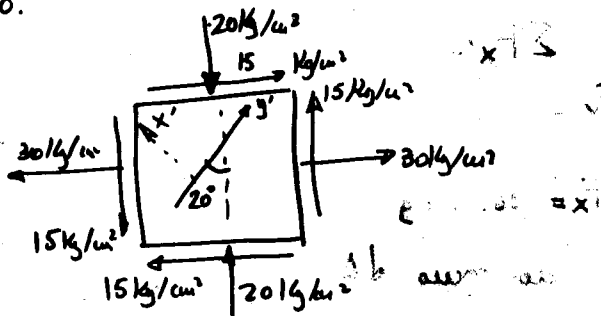 20Kg/cm²
15 Kg/cm²
15Kg/cm²
x'
y'
30Kg/cm²
30Kg/cm²
20°
15Kg/cm²
15Kg/cm²
20Kg/cm²